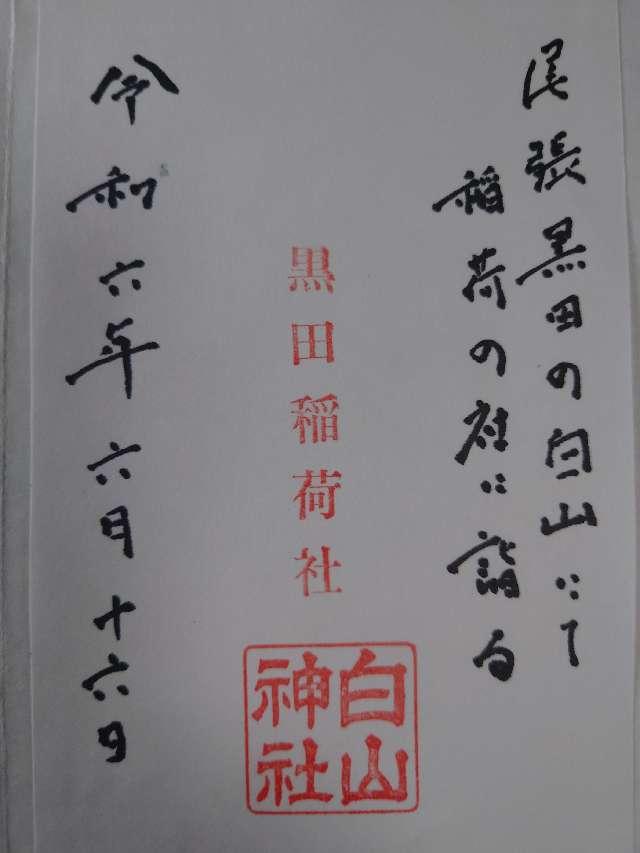 尾張黒田の白山にて
稲荷の社に詣る
黒田稲荷社
白山
神社
令和六年六月十六日